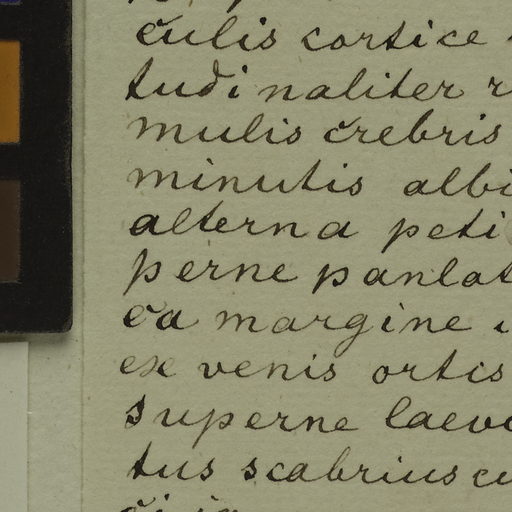 culis cortice
tudinaliter r
mulis crebris
minutis albi
alterna peti
perne panlat
ca margine
ex venis ortis
superne laev
tus scabriuscu